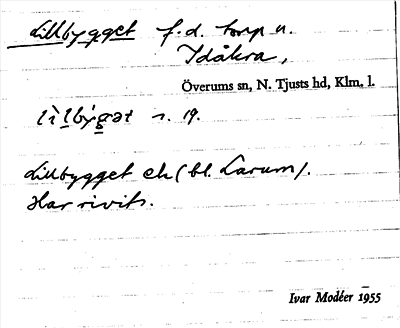 Lillbygget f.d. torp u.
Ydåkra,
Överums sn, N. Tjusts hd, Klm. l.
lìlbýgət s. 19.
Lillbygget ek (bl. Larum).
Har rivits.
Ivar Modéer 1955